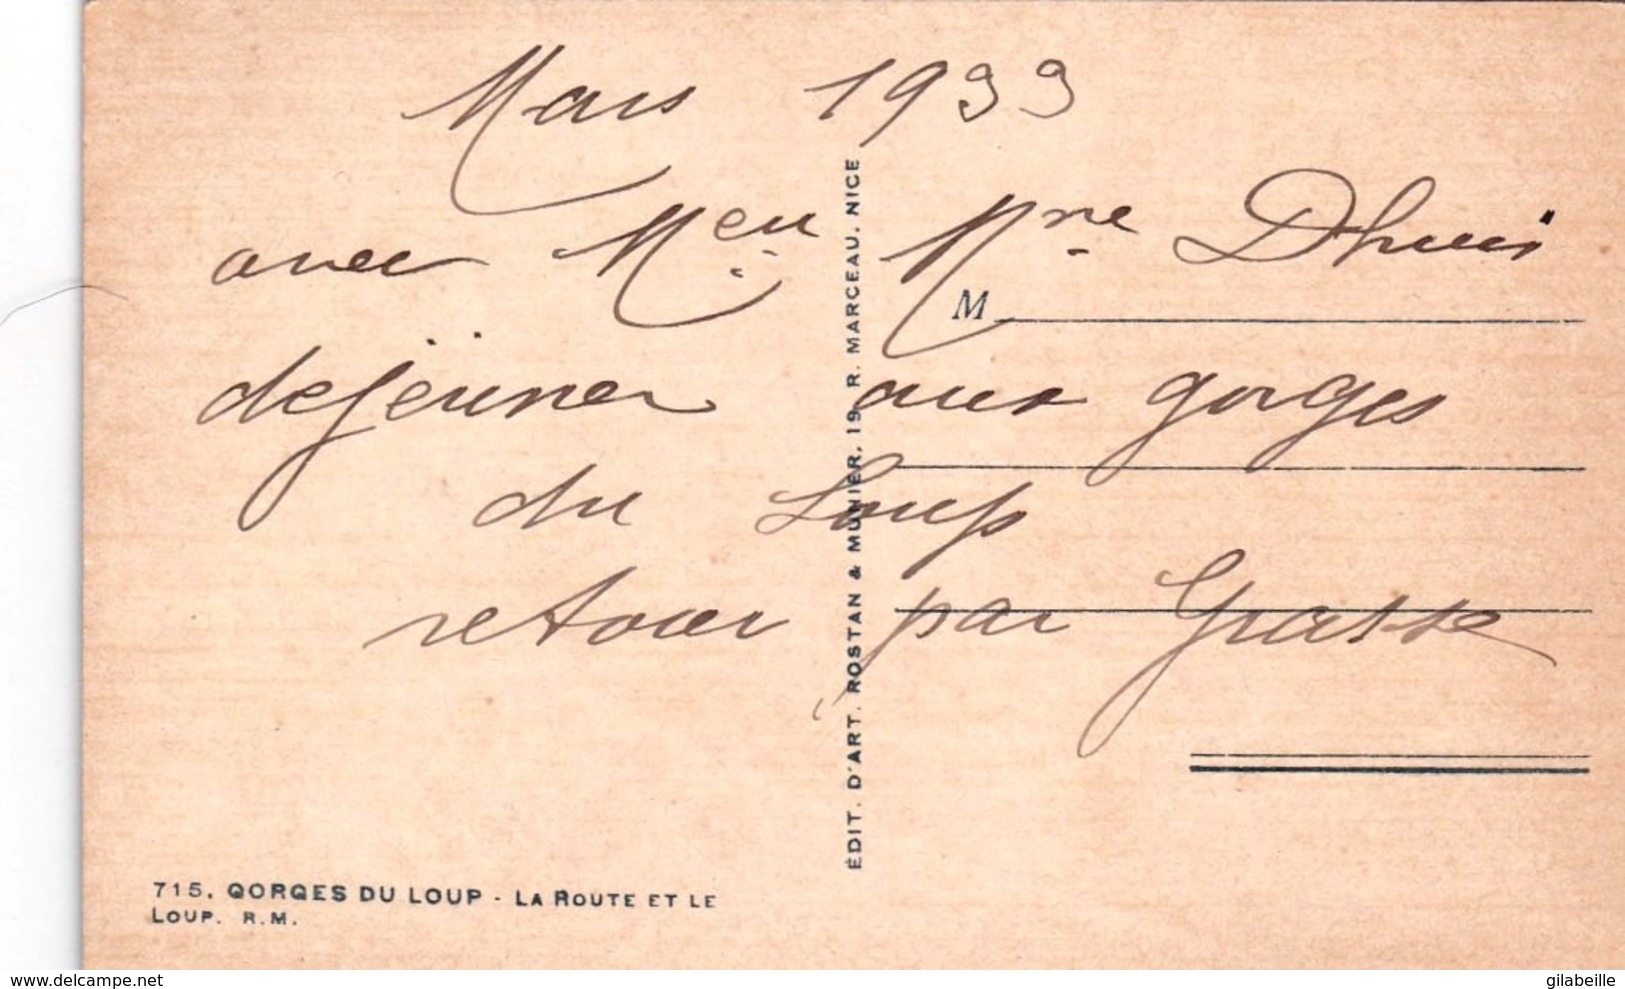 Mars 1933
avec Meu Mre Dhuis
dejëuner aux gorges
du Loup
retour par Grasse
M
ÉDIT. D'ART. ROSTAN & MUNIER, 19, R. MARCEAU. NICE
715. GORGES DU LOUP - LA ROUTE ET LE
LOUP. R.M.
www.delcampe.net
gilabeille